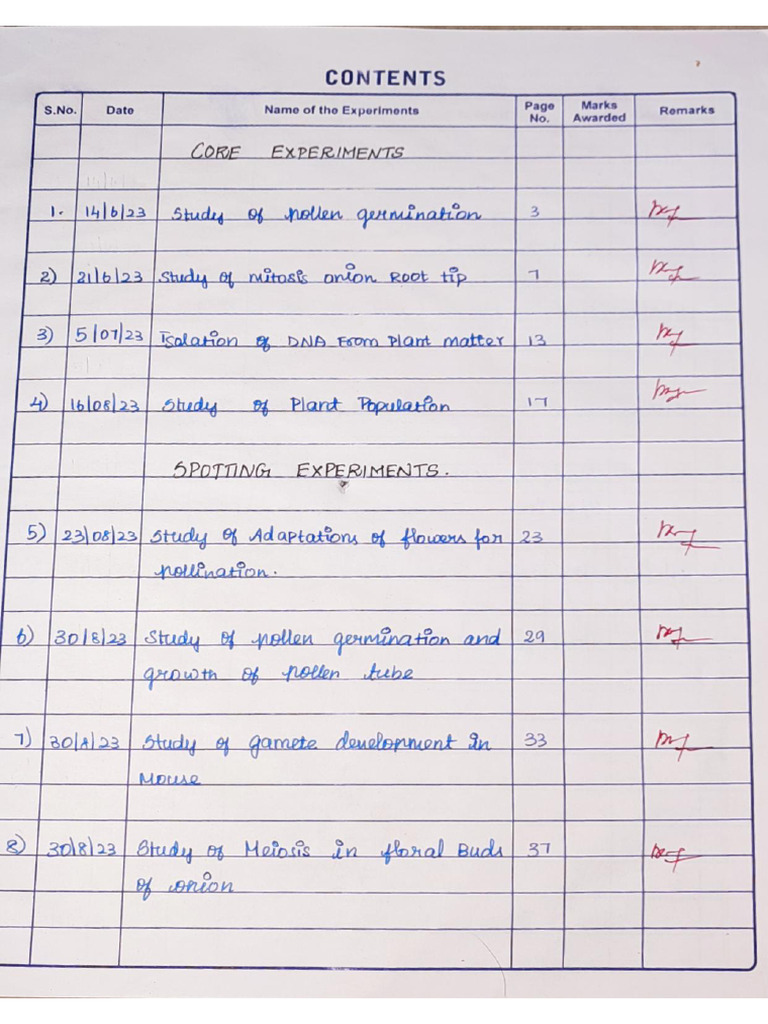 CONTENTS
S.No. Date Name of the Experiments Page No. Marks Awarded Remarks
CORE EXPERIMENTS
1. 14/6/23 Study of pollen germination 3
2) 21/6/23 Study of mitosis onion Root tip 7
3) 5/07/23 Isolation of DNA From Plant matter 13
4) 16/08/23 Study of Plant Population 17
SPOTTING EXPERIMENTS.
5) 23/08/23 Study of Adaptations of flowers for 23
pollination.
6) 30/8/23 Study of pollen germination and 29
growth of pollen tube
7) 30/8/23 Study of gamete development in 33
Mouse
8) 30/8/23 Study of Meiosis in floral Buds 37
of onion